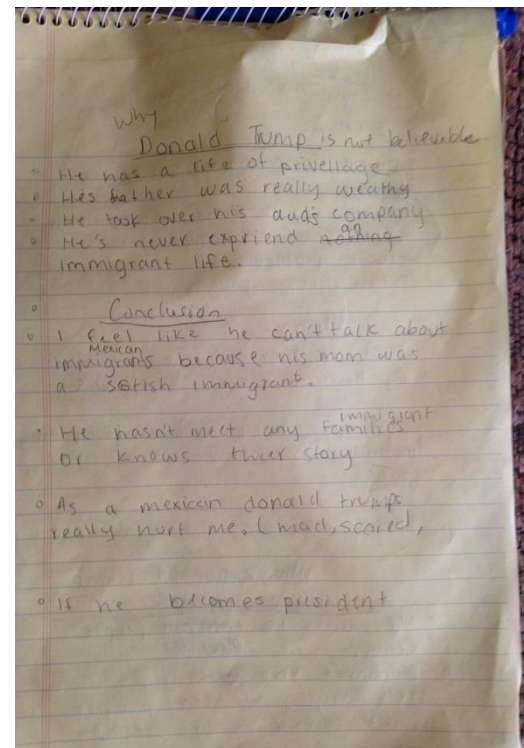 Why
Donald Trump is not believable
He has a life of privellage
Hes father was really weathy
He took over his dad's company
He's never expriend nothing an
immigrant life.
Conclusion
I feel like he can't talk about
Mexican
immigrants because his mom was
a sotish immigrant.
immigrant
He hasn't meet any families
Or knows thier story
As a mexican donald trumps
really hurt me. (mad, scared,
If he becomes president